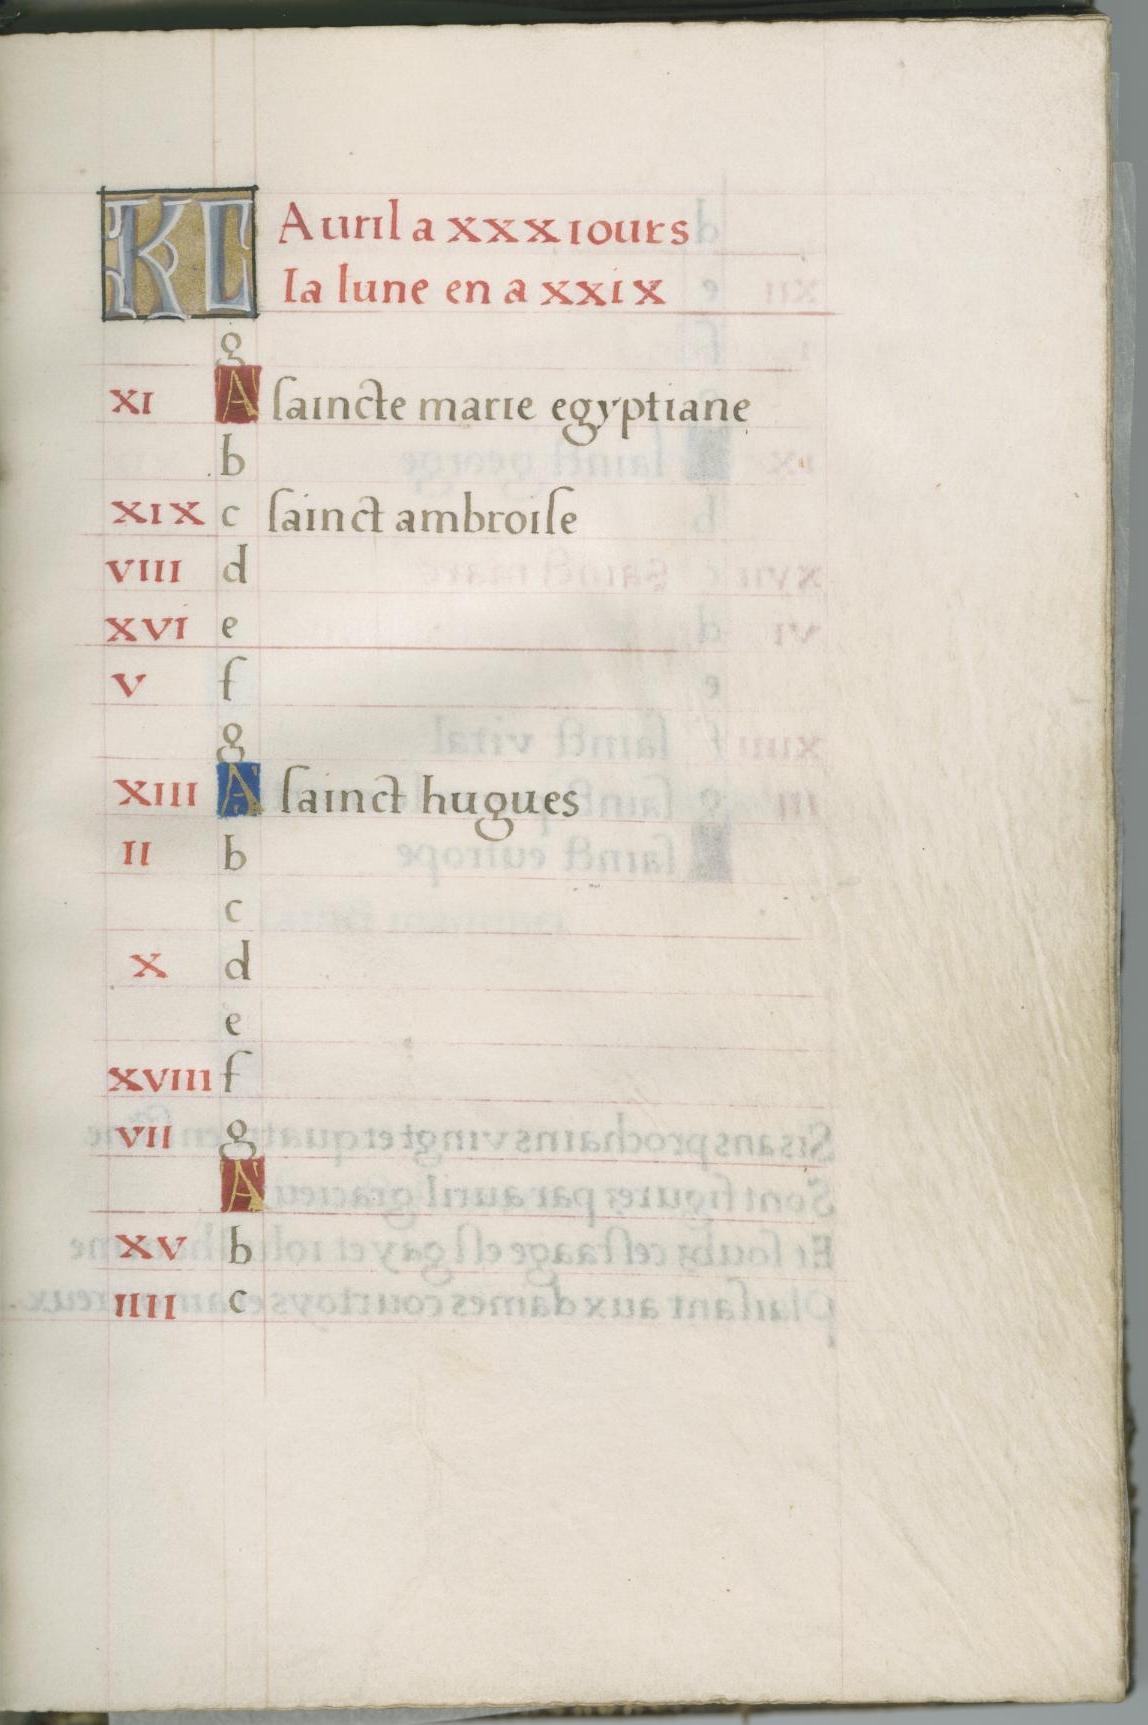 KL Auril a xxx iours
la lune en a xxix
g
XI A saincte marie egyptiane
b
XIX c sainct ambroise
VIII d
XVI e
V f
g
XIII A sainct hugues
II b
c
X d
e
XVIII f
VII g
A
XV b
IIII c